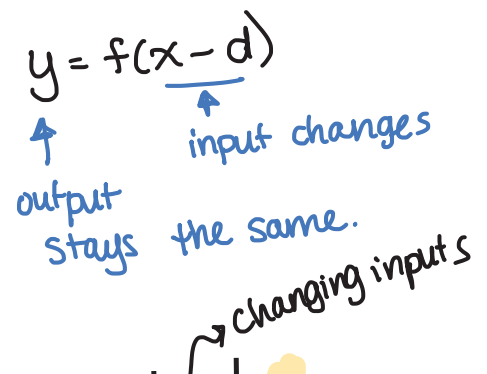 y = f(x - d)
input changes
output
stays the same.
changing inputs